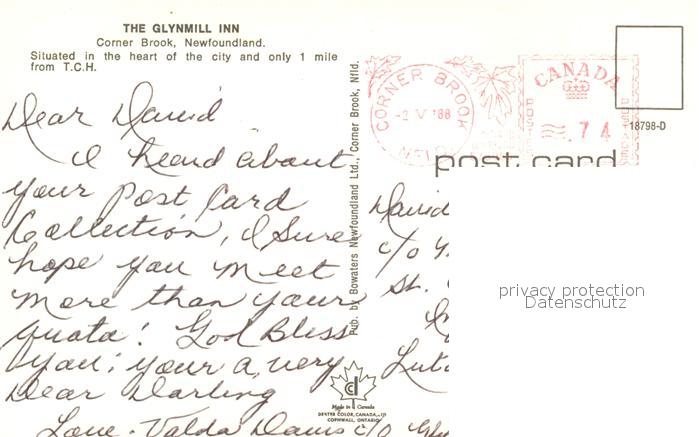 THE GLYNMILL INN
Corner Brook, Newfoundland.
Situated in the heart of the city and only 1 mile
from T.C.H.
Dear David
I heard about
your Post Card
Collection, I Sure
hope you meet
more than your
quota! God Bless
you; your a, very
Dear Darling
Love - Valda Davis c/o
Pub. by Bowaters Newfoundland Ltd., Corner Brook, Nfld.
CORNER BROOK
-2 V '88
NFLD
CANADA
.74
18798-D
post card
David
c/o
St.
privacy protection
Datenschutz
cd
Made in Canada
DEXTER COLOR, CANADA, LTD
CORNWALL, ONTARIO